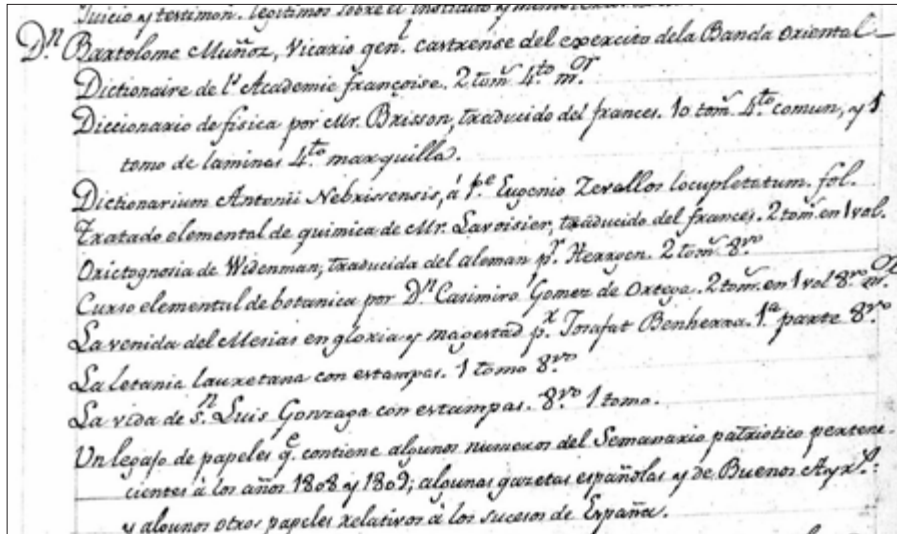 Juicio y testimon. legitimos sobre el instituto y
Dn. Bartolome Muñoz, Vicario genl. castrense del exercito dela Banda Oriental
Dictionaire de l'Academie françoise. 2 tom. 4.to mor
Diccionario de fisica por Mr. Brisson, traducido del frances. 10 tom. 4.to comun, y 1
tomo de laminas 4.to marquilla.
Dictionarium Antonii Nebrissensis, á Pe. Eugenio Zevallos locupletatum. fol.
Tratado elemental de quimica de Mr. Lavoisier, traducido del frances. 2 tom. en 1 vol.
Orictognosia de Widenman, traducida del aleman pr. Herrgen. 2 tom. 8.vo
Curso elemental de botanica por Dn. Casimiro Gomez de Ortega. 2 tom. en 1 vol 8.vo mor.
La venida del Mesias en gloria y magestad pr. Josafat Benherra. 1.a parte 8.vo
La letania lauretana con estampas. 1 tomo 8.vo
La vida de Sn. Luis Gonzaga con estampas. 8.vo 1 tomo.
Un legajo de papeles qe. contiene algunos numeros del Semanario patriotico pertene-
cientes à los años 1808 y 1809; algunas gazetas españolas y de Buenos Ayrs.:
y algunos otros papeles relativos à los sucesos de España.